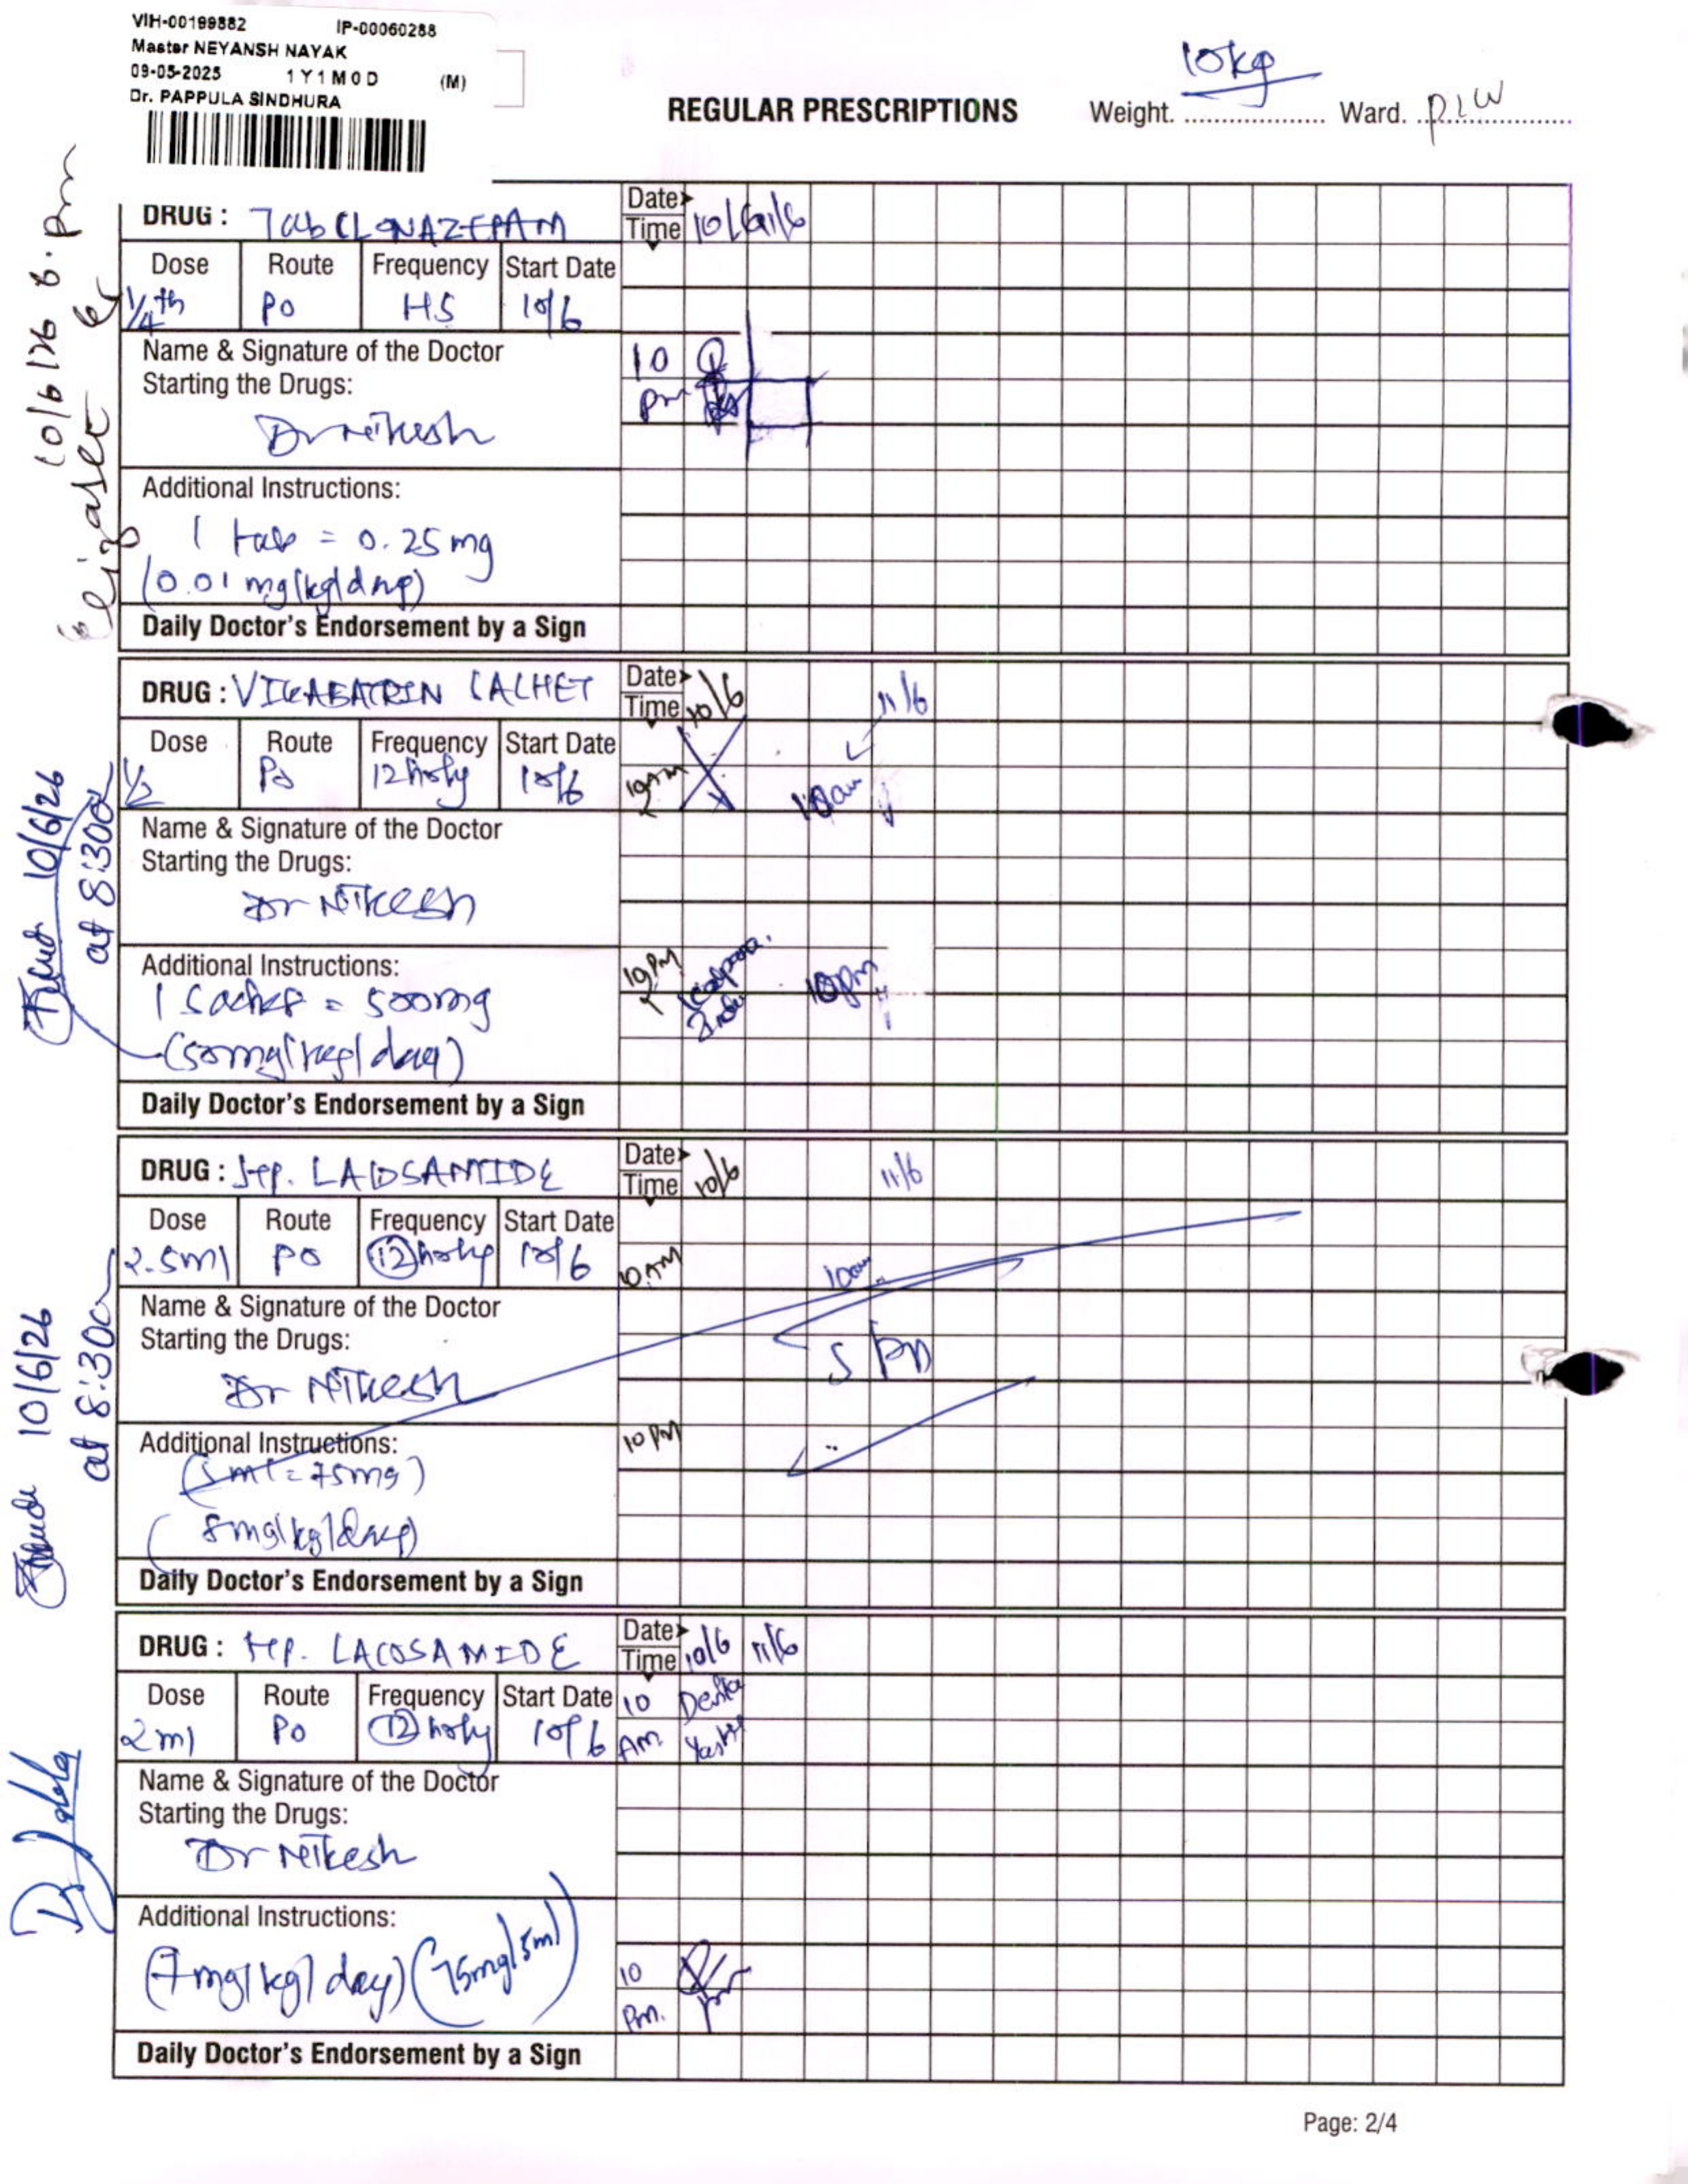 VIH-00199882 IP-00060288
Master NEYANSH NAYAK
09-05-2025 1Y1M0D (M)
Dr. PAPPULA SINDHURA
REGULAR PRESCRIPTIONS Weight. 10kg Ward.
10/6/26 8.pm
DRUG : Tab CLONAZEPAM
Date
Time 10/6 11/6
Dose Route Frequency Start Date
1/4th PO HS 10/6
Name & Signature of the Doctor
Starting the Drugs:
Dr Nikesh
10
pm
Additional Instructions:
1 tab = 0.25 mg
(0.01 mg/kg/day)
Daily Doctor's Endorsement by a Sign
10/6/26
at 8:30
DRUG : VIGABATRIN SACHET
Date
Time 10/6 11/6
Dose Route Frequency Start Date
1/2 PO 12 hrly 10/6
10AM 10am
Name & Signature of the Doctor
Starting the Drugs:
Dr Nikesh
Additional Instructions:
10PM 10pm
1 Sachet = 500mg
(50mg/kg/day)
Daily Doctor's Endorsement by a Sign
10/6/26
at 8:30
DRUG : Syp. LACOSAMIDE
Date
Time 10/6 11/6
Dose Route Frequency Start Date
2.5ml PO 12 hrly 10/6
10AM 10am
Name & Signature of the Doctor
Starting the Drugs:
Dr Nikesh
Additional Instructions:
10PM
(5ml = 75mg)
(8mg/kg/day)
Daily Doctor's Endorsement by a Sign
DRUG : Syp. LACOSAMIDE
Date
Time 10/6 11/6
Dose Route Frequency Start Date
2ml PO 12 hrly 10/6
10
AM
Name & Signature of the Doctor
Starting the Drugs:
Dr Nikesh
Additional Instructions:
(7mg/kg/day) (75mg/5ml)
10
Pm.
Daily Doctor's Endorsement by a Sign
Page: 2/4